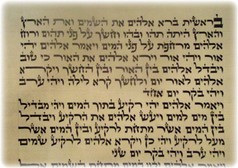 בראשית ברא אלהים את השמים ואת הארץ
והארץ היתה תהו ובהו וחשך על פני תהום ורוח
אלהים מרחפת על פני המים ויאמר אלהים יהי
אור ויהי אור וירא אלהים את האור כי טוב
ויבדל אלהים בין האור ובין החשך ויקרא
אלהים לאור יום ולחשך קרא לילה ויהי ערב
ויהי בקר יום אחד
ויאמר אלהים יהי רקיע בתוך המים ויהי מבדיל
בין מים למים ויעש אלהים את הרקיע ויבדל
בין המים אשר מתחת לרקיע ובין המים אשר
מעל לרקיע ויהי כן ויקרא אלהים לרקיע שמים
ויהי ערב ויהי בקר יום שני